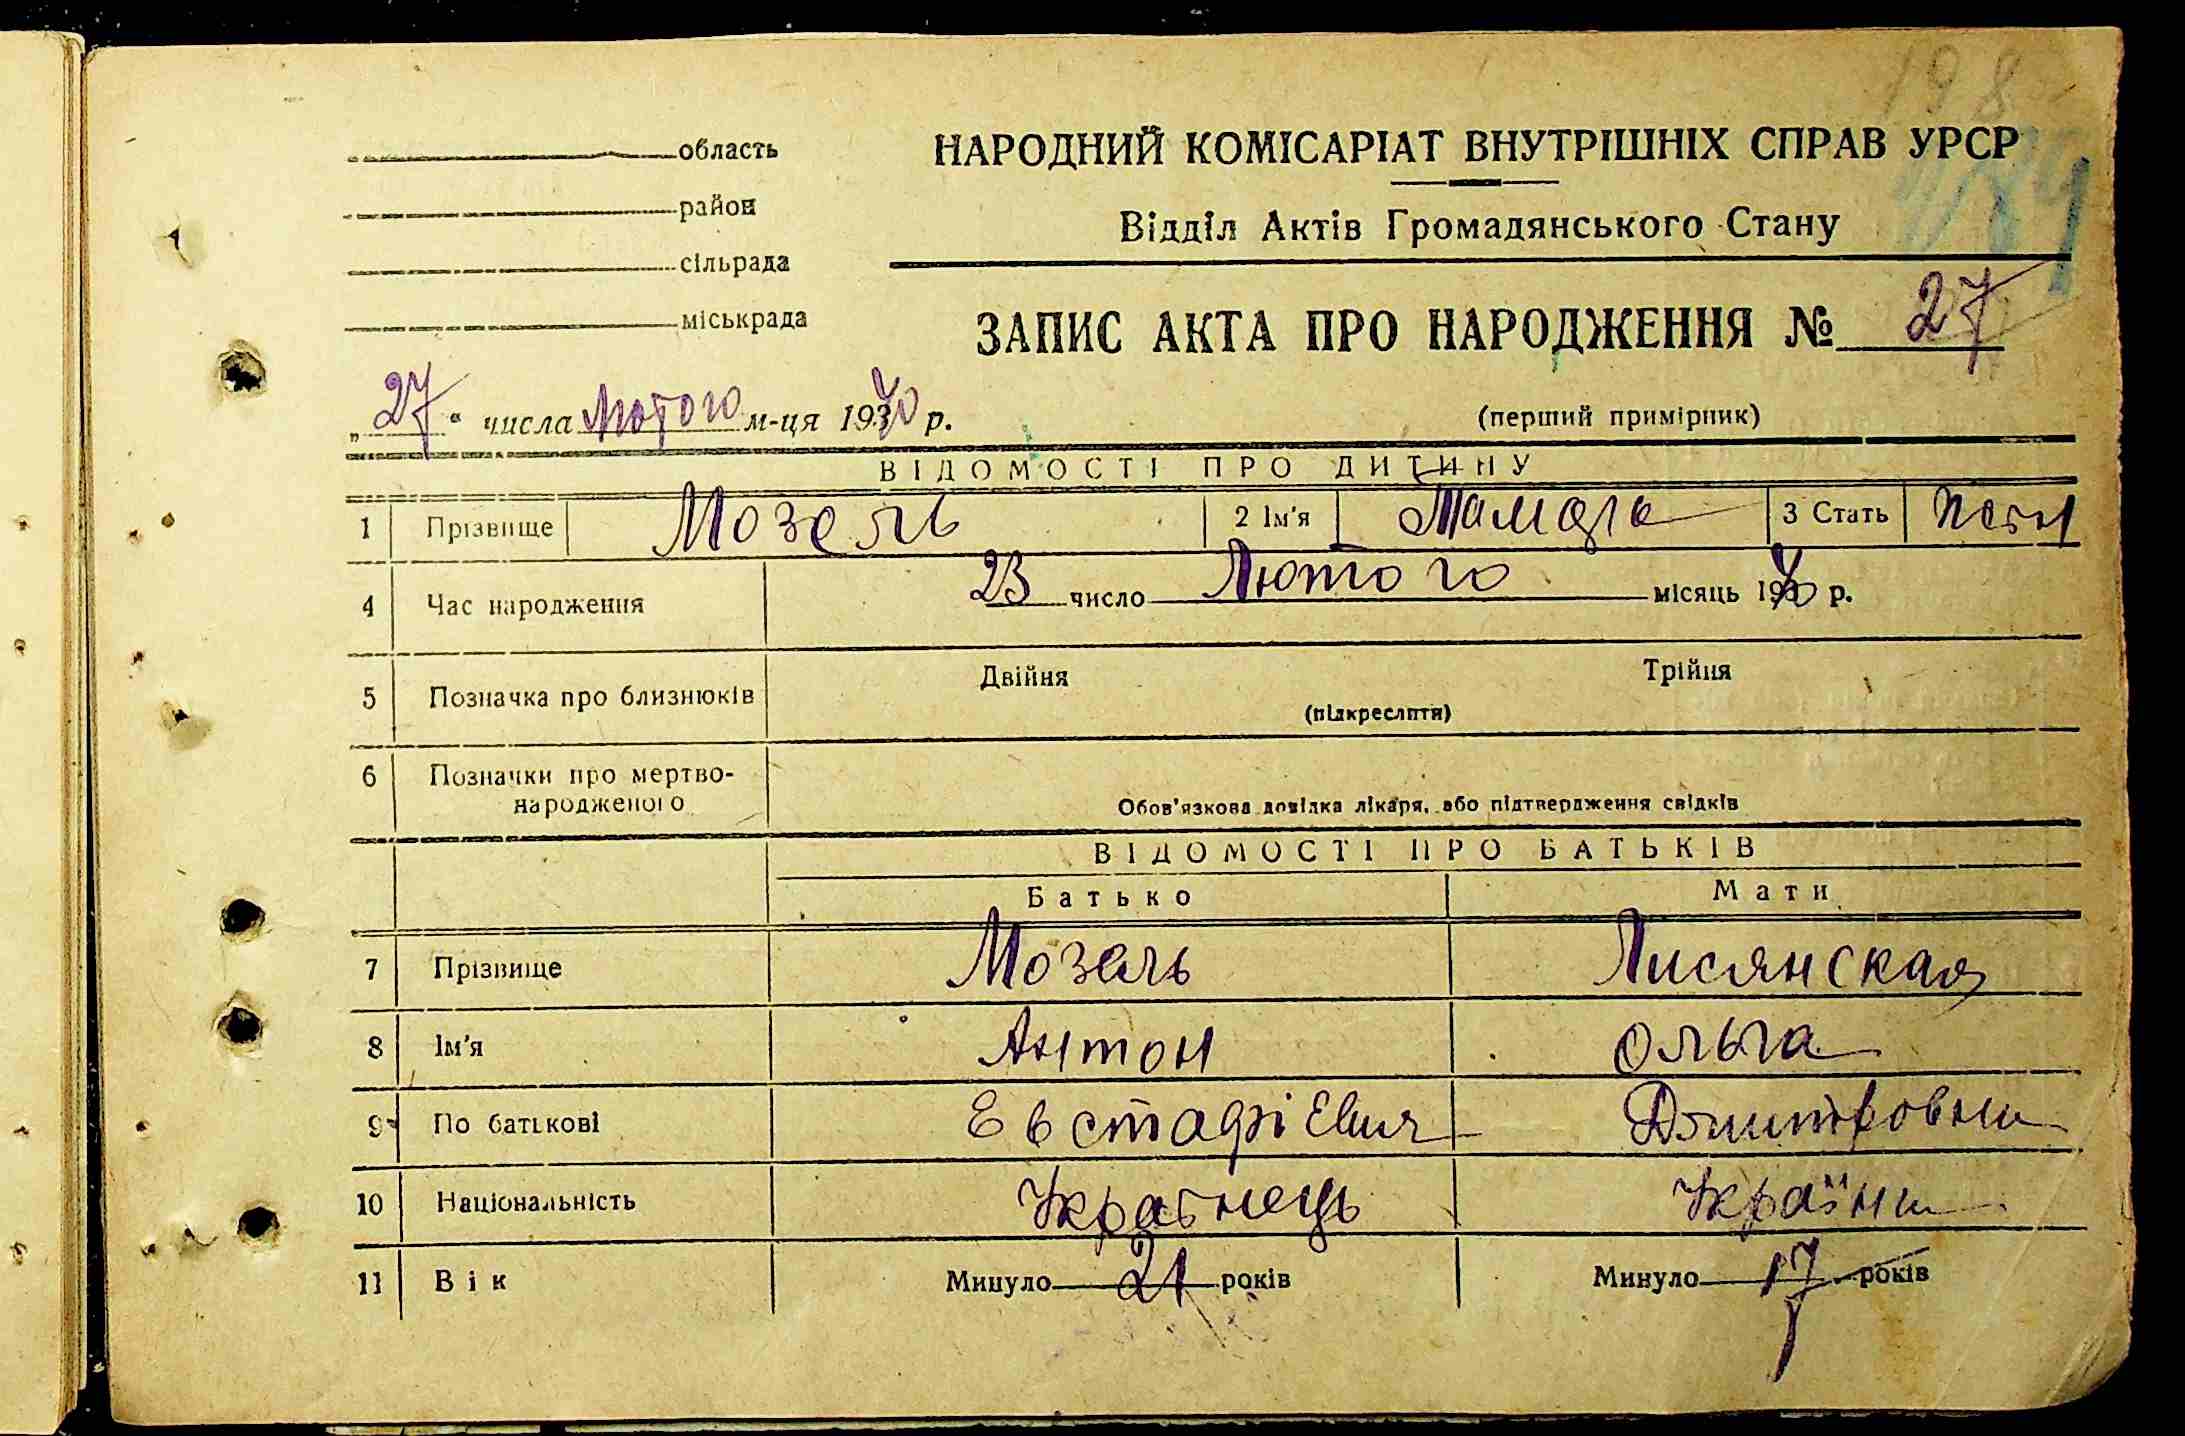 198
189
область
район
сільрада
міськрада
НАРОДНИЙ КОМІСАРІАТ ВНУТРІШНІХ СПРАВ УРСР
Відділ Актів Громадянського Стану
ЗАПИС АКТА ПРО НАРОДЖЕННЯ № 27
„27" числа Лютого м-ця 1940 р.
(перший примірник)
ВІДОМОСТІ ПРО ДИТИНУ
1 Прізвище Мозель 2 Ім'я Тамара 3 Стать
4 Час народження 23 число Лютого місяць 1940 р.
5 Позначка про близнюків Двійня Трійня
(підкреслити)
6 Позначки про мертво-
народженого
Обов'язкова довідка лікаря, або підтвердження свідків
ВІДОМОСТІ ПРО БАТЬКІВ
Батько Мати
7 Прізвище Мозель Лисянская
8 Ім'я Антон Ольга
9 По батькові Евстафіевич Дмитровна
10 Національність Українець Українк
11 Вік Минуло 21 років Минуло 17 років